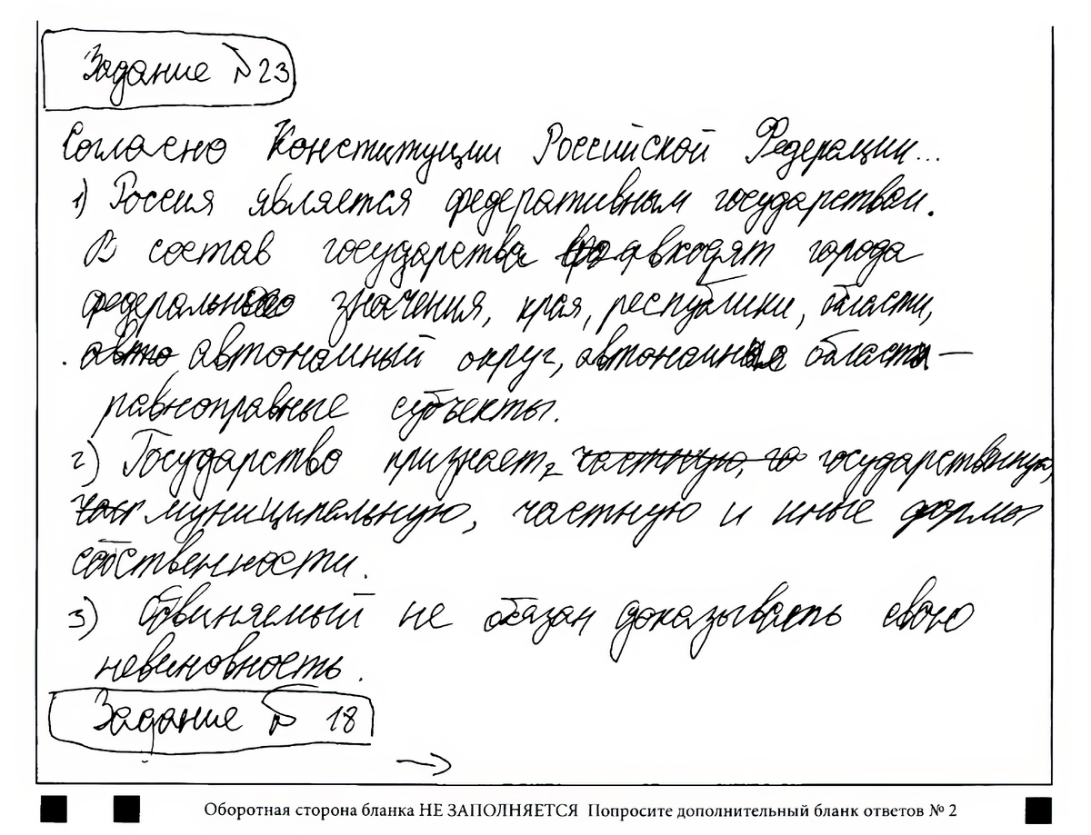 Задание №23
Согласно Конституции Российской Федерации...
1) Россия является федеративным государством.
В состав государства входят города
федерального значения, края, республики, области,
авто автономный округ, автономная область —
равноправные субъекты.
2) Государство признает, частную, го государственную,
част муниципальную, частную и иные формы
собственности.
3) Обвиняемый не обязан доказывать свою
невиновность.
Задание № 18
→
Оборотная сторона бланка НЕ ЗАПОЛНЯЕТСЯ Попросите дополнительный бланк ответов № 2